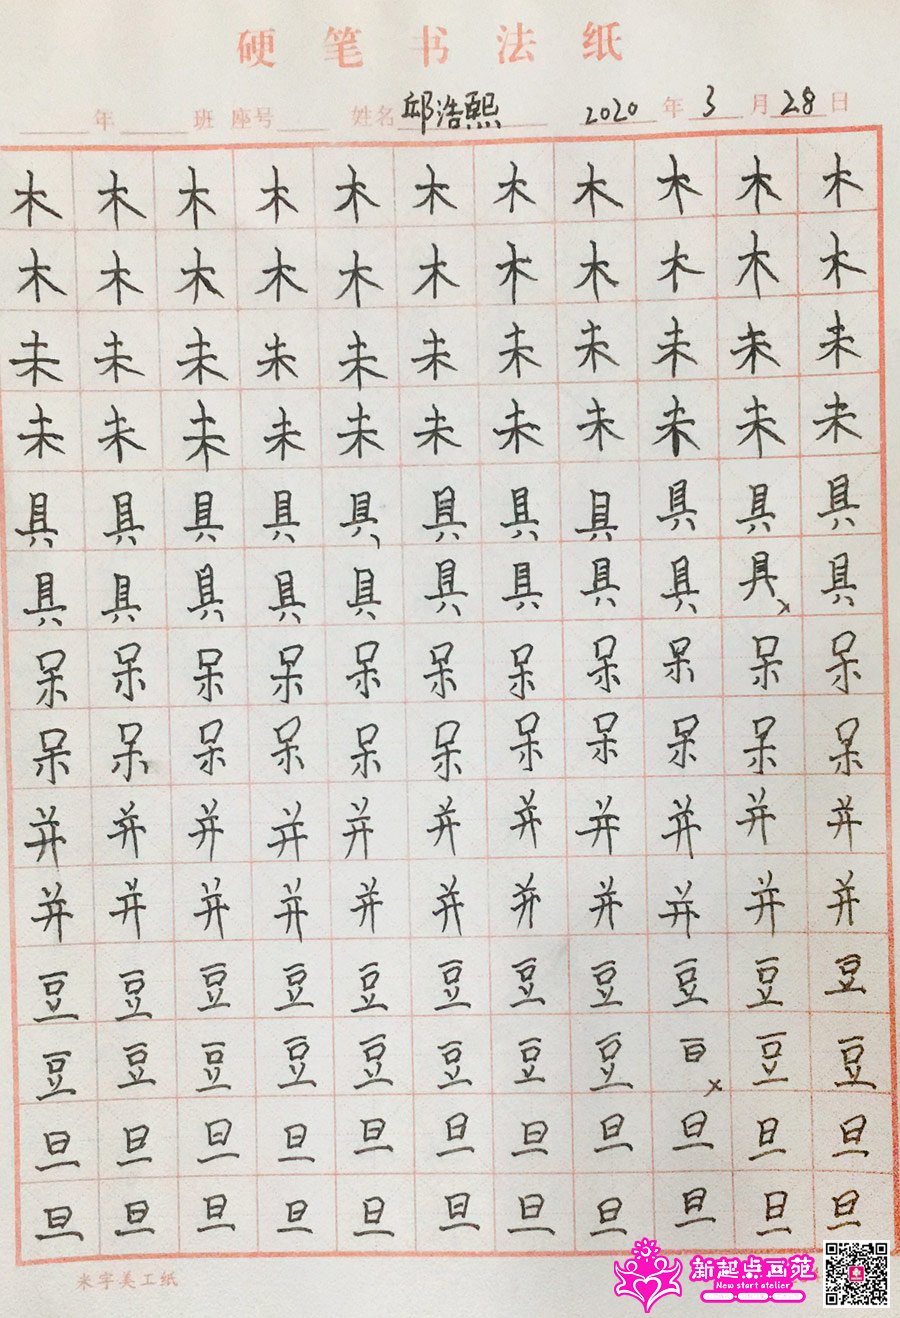 硬笔书法纸
年 班 座号 姓名 邱浩熙 2020 年 3 月 28 日
木 木 木 木 木 木 木 木 木 木 木
木 木 木 木 木 木 木 木 木 木 木
未 未 未 未 未 未 未 未 未 未 未
未 未 未 未 未 未 未 未 未 未 未
具 具 具 具 具 具 具 具 具 具 具
具 具 具 具 具 具 具 具 具 具 × 具
呆 呆 呆 呆 呆 呆 呆 呆 呆 呆 呆
呆 呆 呆 呆 呆 呆 呆 呆 呆 呆 呆
并 并 并 并 并 并 并 并 并 并 并
并 并 并 并 并 并 并 并 并 并 并
豆 豆 豆 豆 豆 豆 豆 豆 豆 豆 豆
豆 豆 豆 豆 豆 豆 豆 豆 × 豆 豆
旦 旦 旦 旦 旦 旦 旦 旦 旦 旦 旦
旦 旦 旦 旦 旦 旦 旦 旦 旦 旦 旦
米字美工纸
新起点画苑
New start atelier